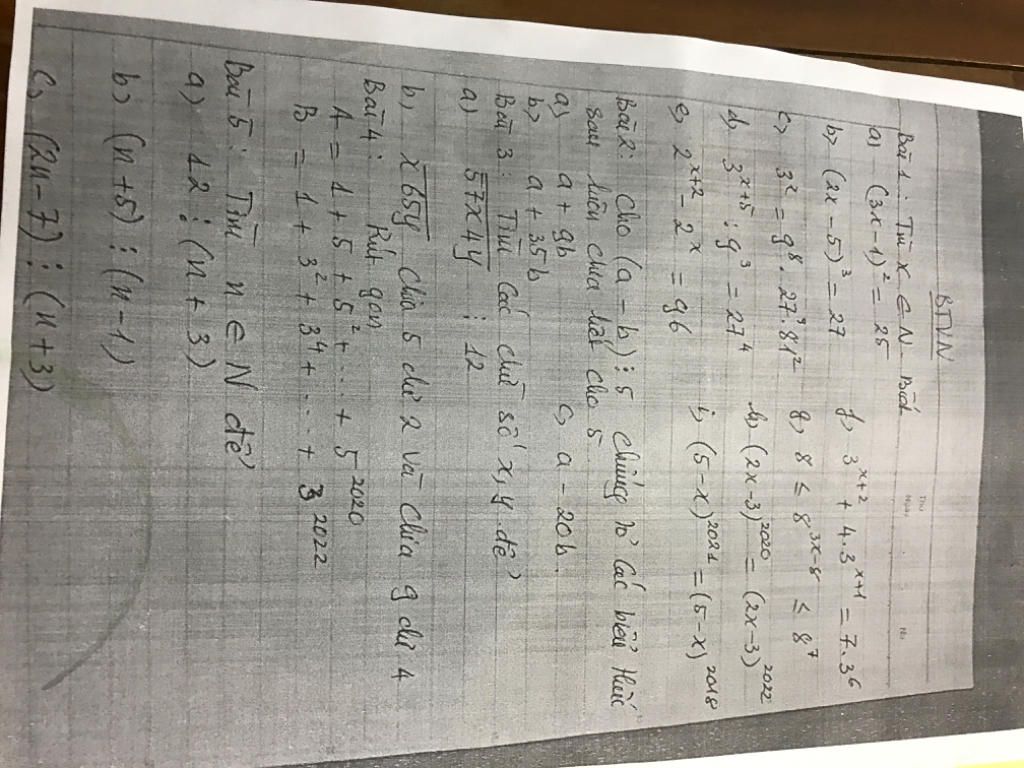 BTVN
Bài 1: Tìm x ∈ N Biết
a) (3x - 1)² = 25
b) (2x - 5)³ = 27
c) 3ˣ = 9⁸ . 27³ . 81²
d) 3ˣ⁺⁵ : 9³ = 27⁴
e) 2ˣ⁺² - 2ˣ = 96
f) 3ˣ⁺² + 4.3ˣ⁺¹ = 7.3⁶
g) 8 ≤ 8³ˣ⁻⁸ ≤ 8⁷
h) (2x - 3)²⁰²⁰ = (2x - 3)²⁰²²
i) (5 - x)²⁰²¹ = (5 - x)²⁰¹⁸
Bài 2: Cho (a - b) ⋮ 5 Chứng tỏ các biểu thức
sau luôn chia hết cho 5
a) a + 9b
b) a + 35b
c) a - 20b.
Bài 3: Tìm các chữ số x, y để
a) 57x4y ⋮ 12
b) x65y chia 5 dư 2 và chia 9 dư 4
Bài 4: Rút gọn
A = 1 + 5 + 5² + ... + 5²⁰²⁰
B = 1 + 3² + 3⁴ + ... + 3²⁰²²
Bài 5: Tìm n ∈ N để
a) 12 ⋮ (n + 3)
b) (n + 5) ⋮ (n - 1)
c) (2n - 7) ⋮ (n + 3)